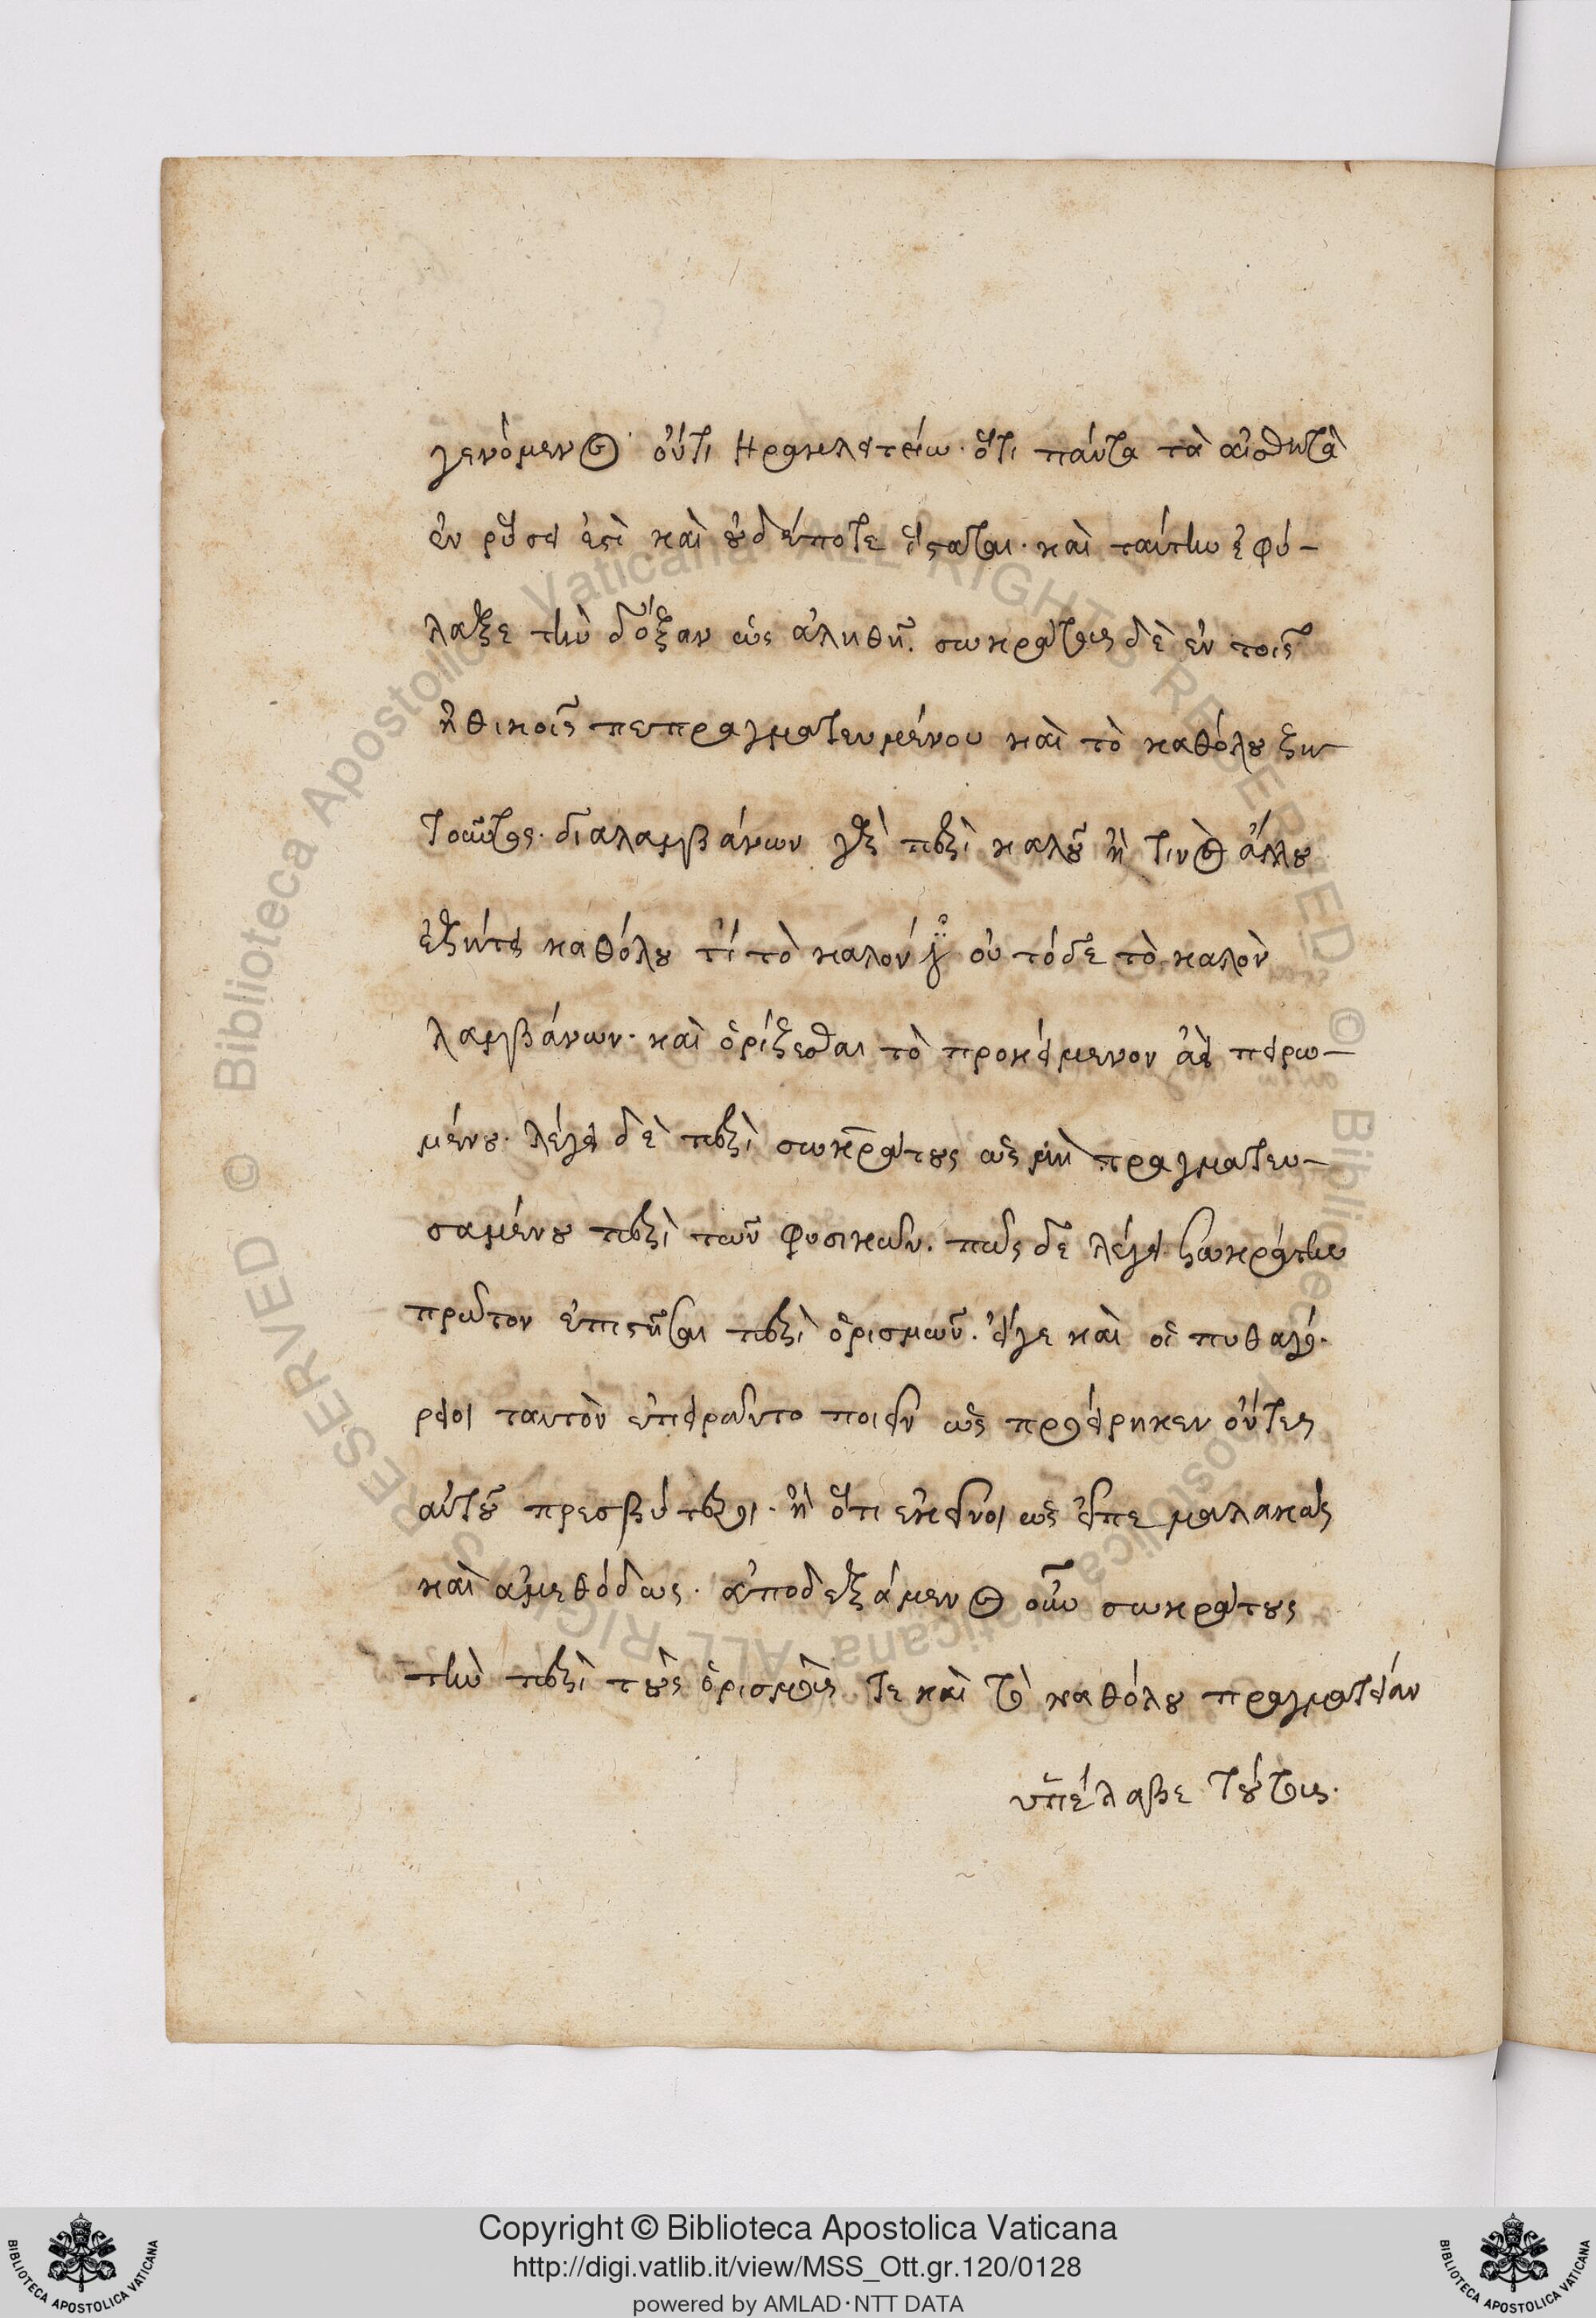 γενόμενος ὄντι Ηρακλειτείω· ὅτι πάντα τὰ αἰσθητὰ
ἐν ρύσει ἐστὶ καὶ οὐδέποτε ἵσταται· καὶ ταύτην ἐφύ-
λαξε τὴν δόξαν ὡς ἀληθῆ. σωκράτους δὲ ἐν τοῖς
ἠθικοῖς πεπραγματευμένου καὶ τὸ καθόλου ζη
τοῦντος· διαλαμβάνων γὰρ περὶ καλοῦ ἢ τινὸς ἄλλου
ἐζήτει καθόλου τί τὸ καλόν οὐ τόδε τὸ καλὸν
λαμβάνων· καὶ ὁρίζεσθαι τὸ προκείμενον ἀεὶ πειρω-
μένου· λέγει δὲ περὶ σωκράτους ὡς μὴ πραγματευ-
σαμένου περὶ τῶν φυσικῶν. πῶς δὲ λέγει σωκράτην
πρῶτον ἐπιστῆσαι περὶ ὁρισμῶν. εἴγε καὶ οἱ πυθαγό-
ρειοι ταυτὸν ἐπειρῶντο ποιεῖν ὡς προείρηκεν ὄντες
αὐτοῦ πρεσβύτεροι· ἢ ὅτι ἐκεῖνοι ὡς εἶπε μαλακῶς
καὶ ἀμεθόδως· ἀποδεξάμενος οὖν σωκράτους
τὴν περὶ τοὺς ὁρισμούς τε καὶ τὸ καθόλου πραγματείαν
ὑπέλαβε τούτοις.
Copyright © Biblioteca Apostolica Vaticana
http://digi.vatlib.it/view/MSS_Ott.gr.120/0128
powered by AMLAD·NTT DATA
BIBLIOTECA APOSTOLICA VATICANA
BIBLIOTECA APOSTOLICA VATICANA
© Biblioteca Apostolica Vaticana ALL RIGHTS RESERVED
© Biblioteca Apostolica Vaticana ALL RIGHTS RESERVED